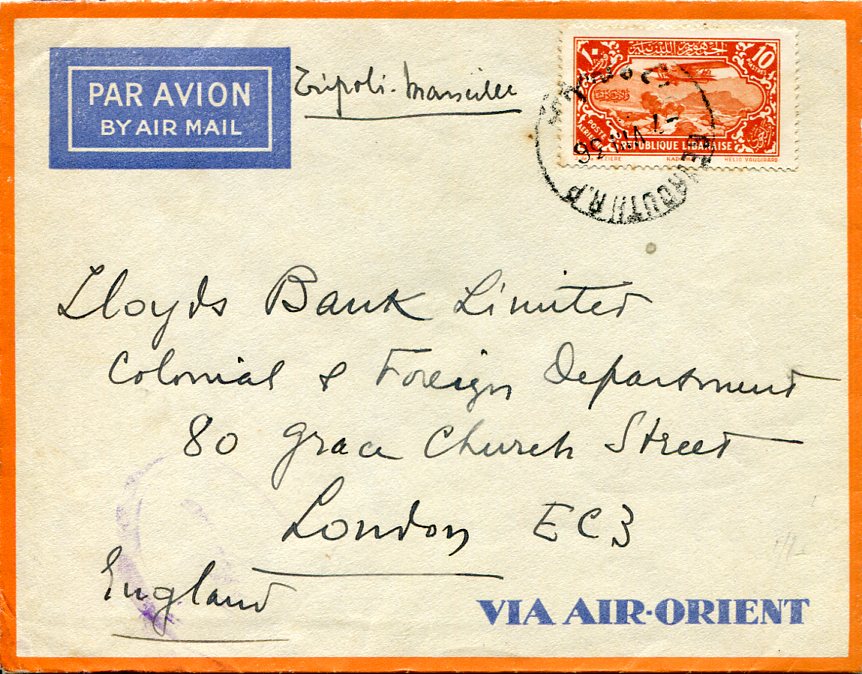 PAR AVION
BY AIR MAIL
Tripoli-Marseille
10
POSTE AÉRIENNE
RÉPUBLIQUE LIBANAISE
HELIO VAUGIRARD
BEYROUTH R.P
Lloyds Bank Limited
Colonial & Foreign Department
80 Grace Church Street
London EC3
England
VIA AIR-ORIENT